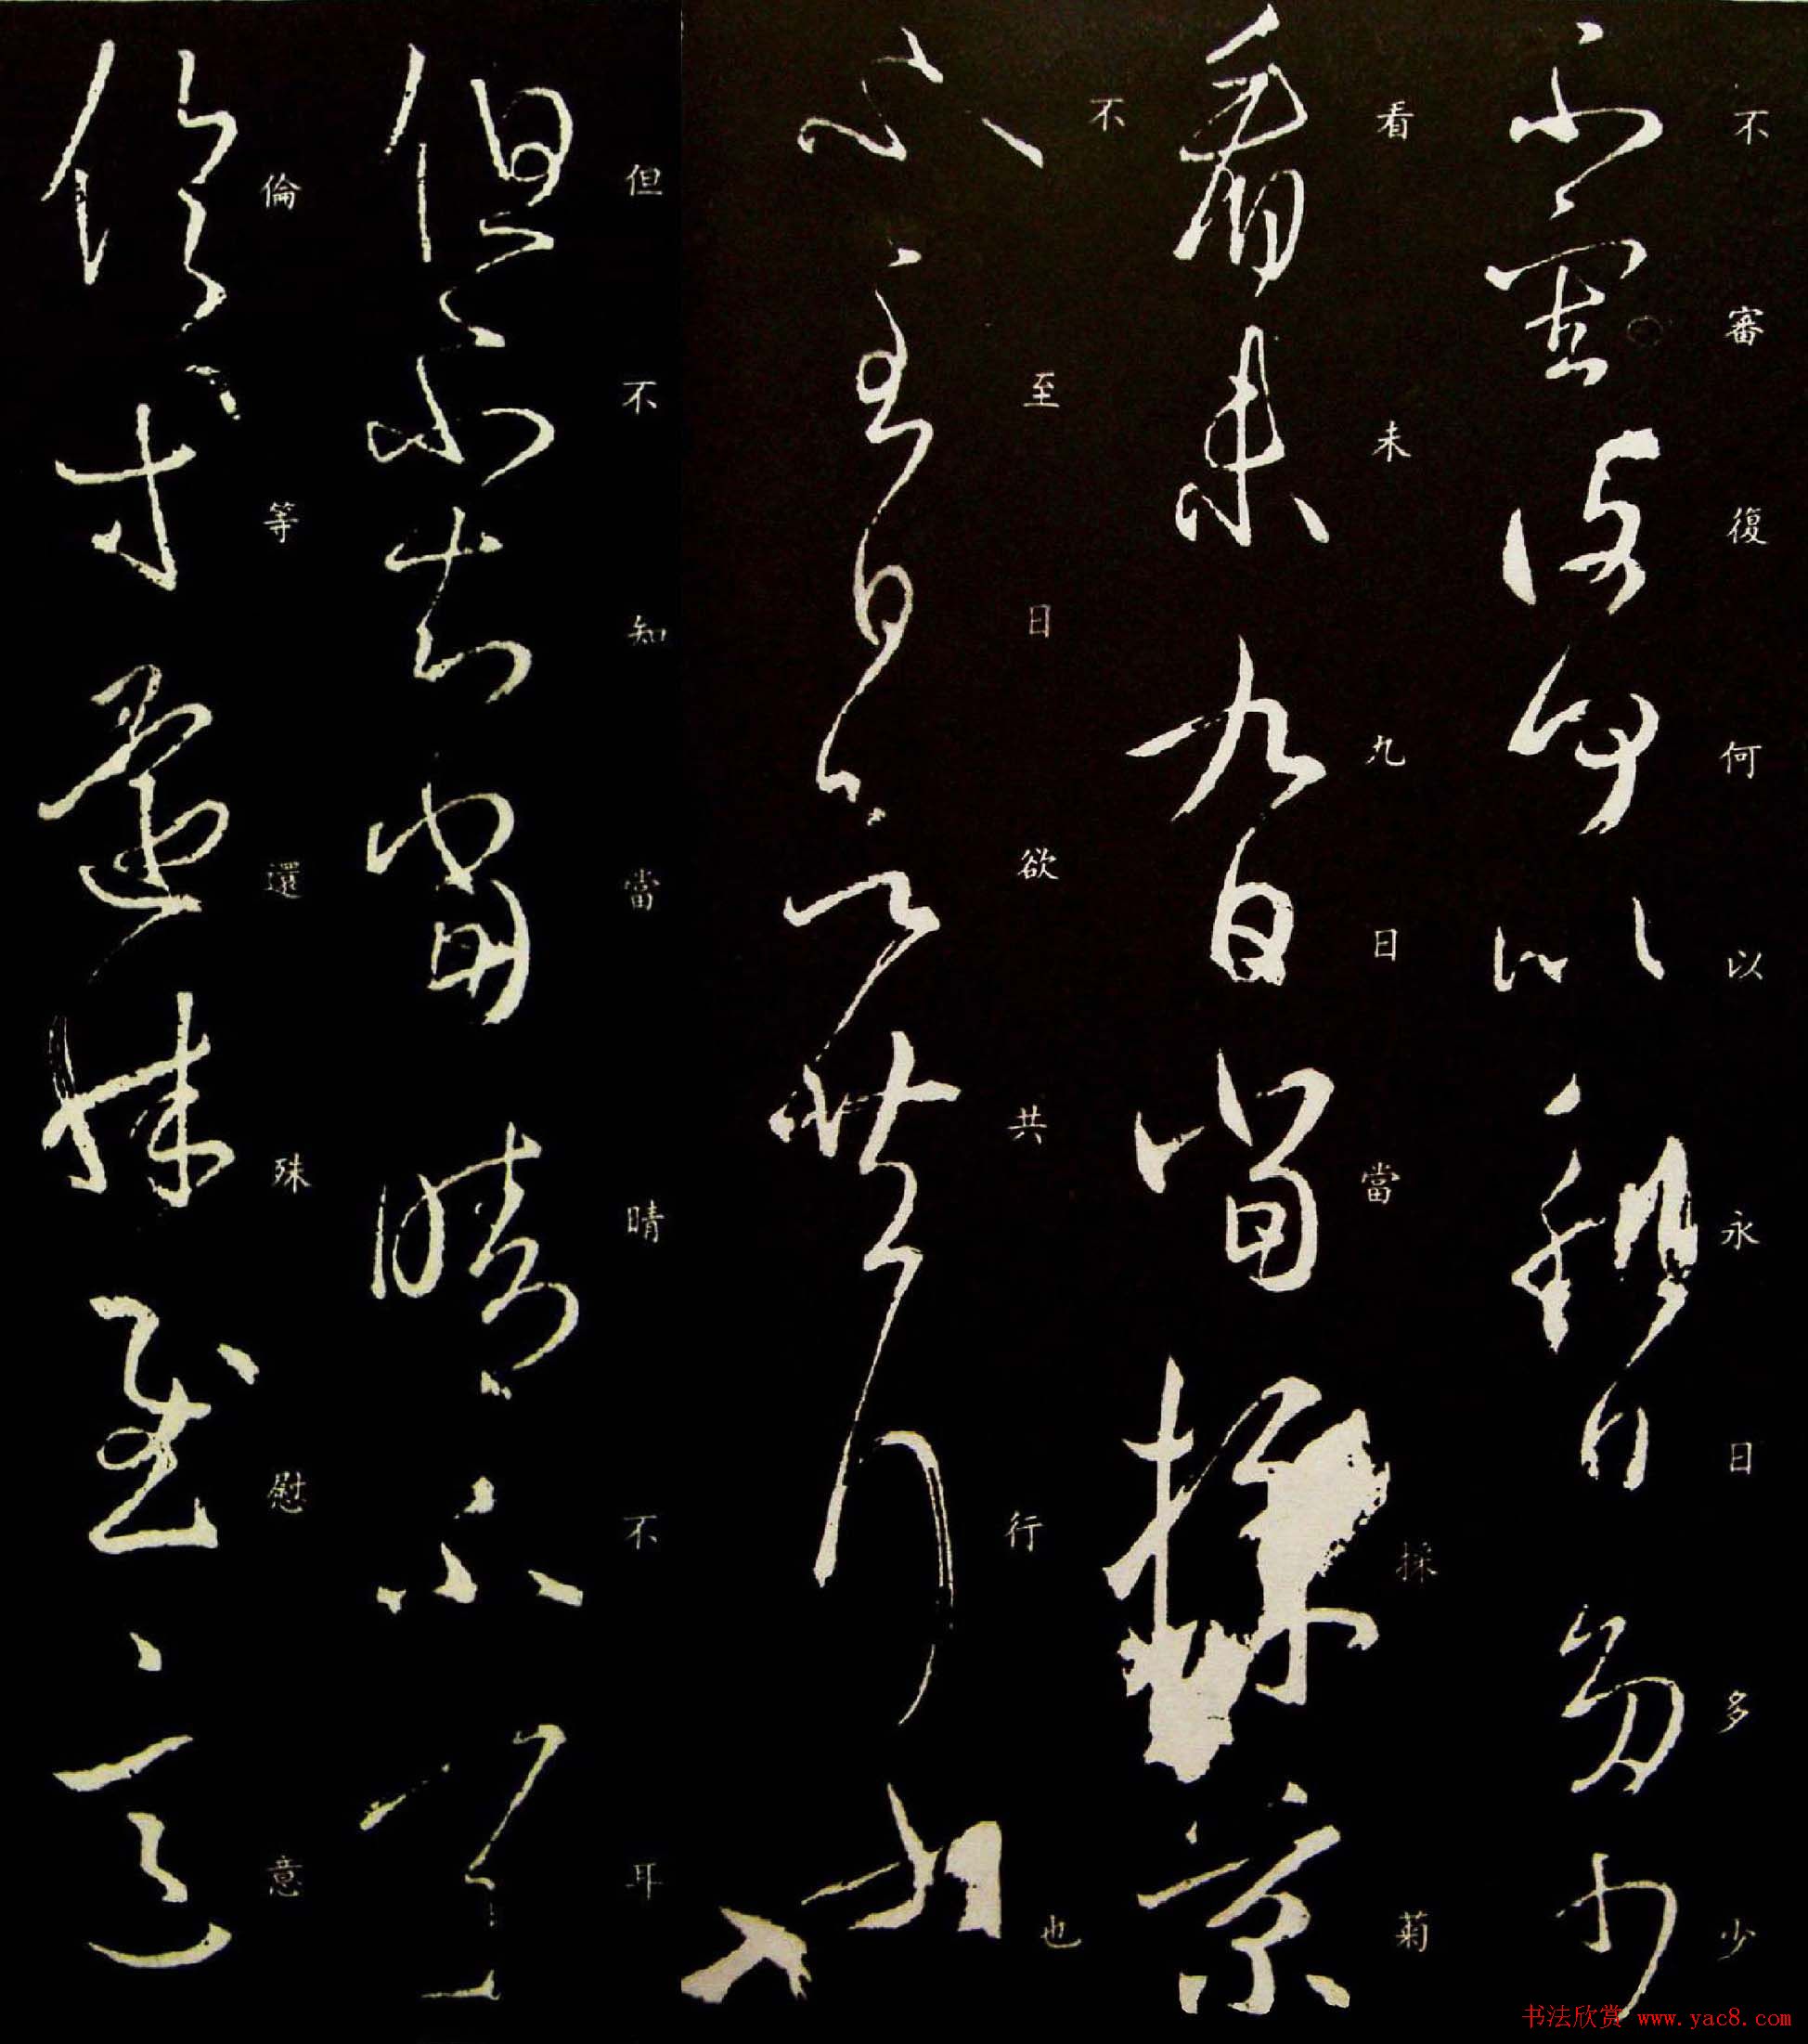 不審復何以永日多少
看未九日當採菊
不至日欲共行也
但不知當晴不耳
倫等還殊慰意
书法欣赏 www.yac8.com